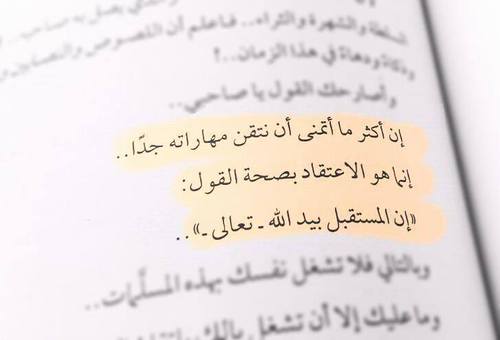 السلطة والشهرة والثراء.. فاعلم أن اللصوص والنصابين
وذكاة ودهاة في هذا الزمان..!
وأصارحك القول يا صاحبي..
إن أكثر ما أتمنى أن نتقن مهاراته جدًا..
إنما هو الاعتقاد بصحة القول:
«إن المستقبل بيد الله ـ تعالى ـ»..
وبالتالي فلا تشغل نفسك بهذه المسلَّمات..
وما عليك إلا أن تشغل بالك